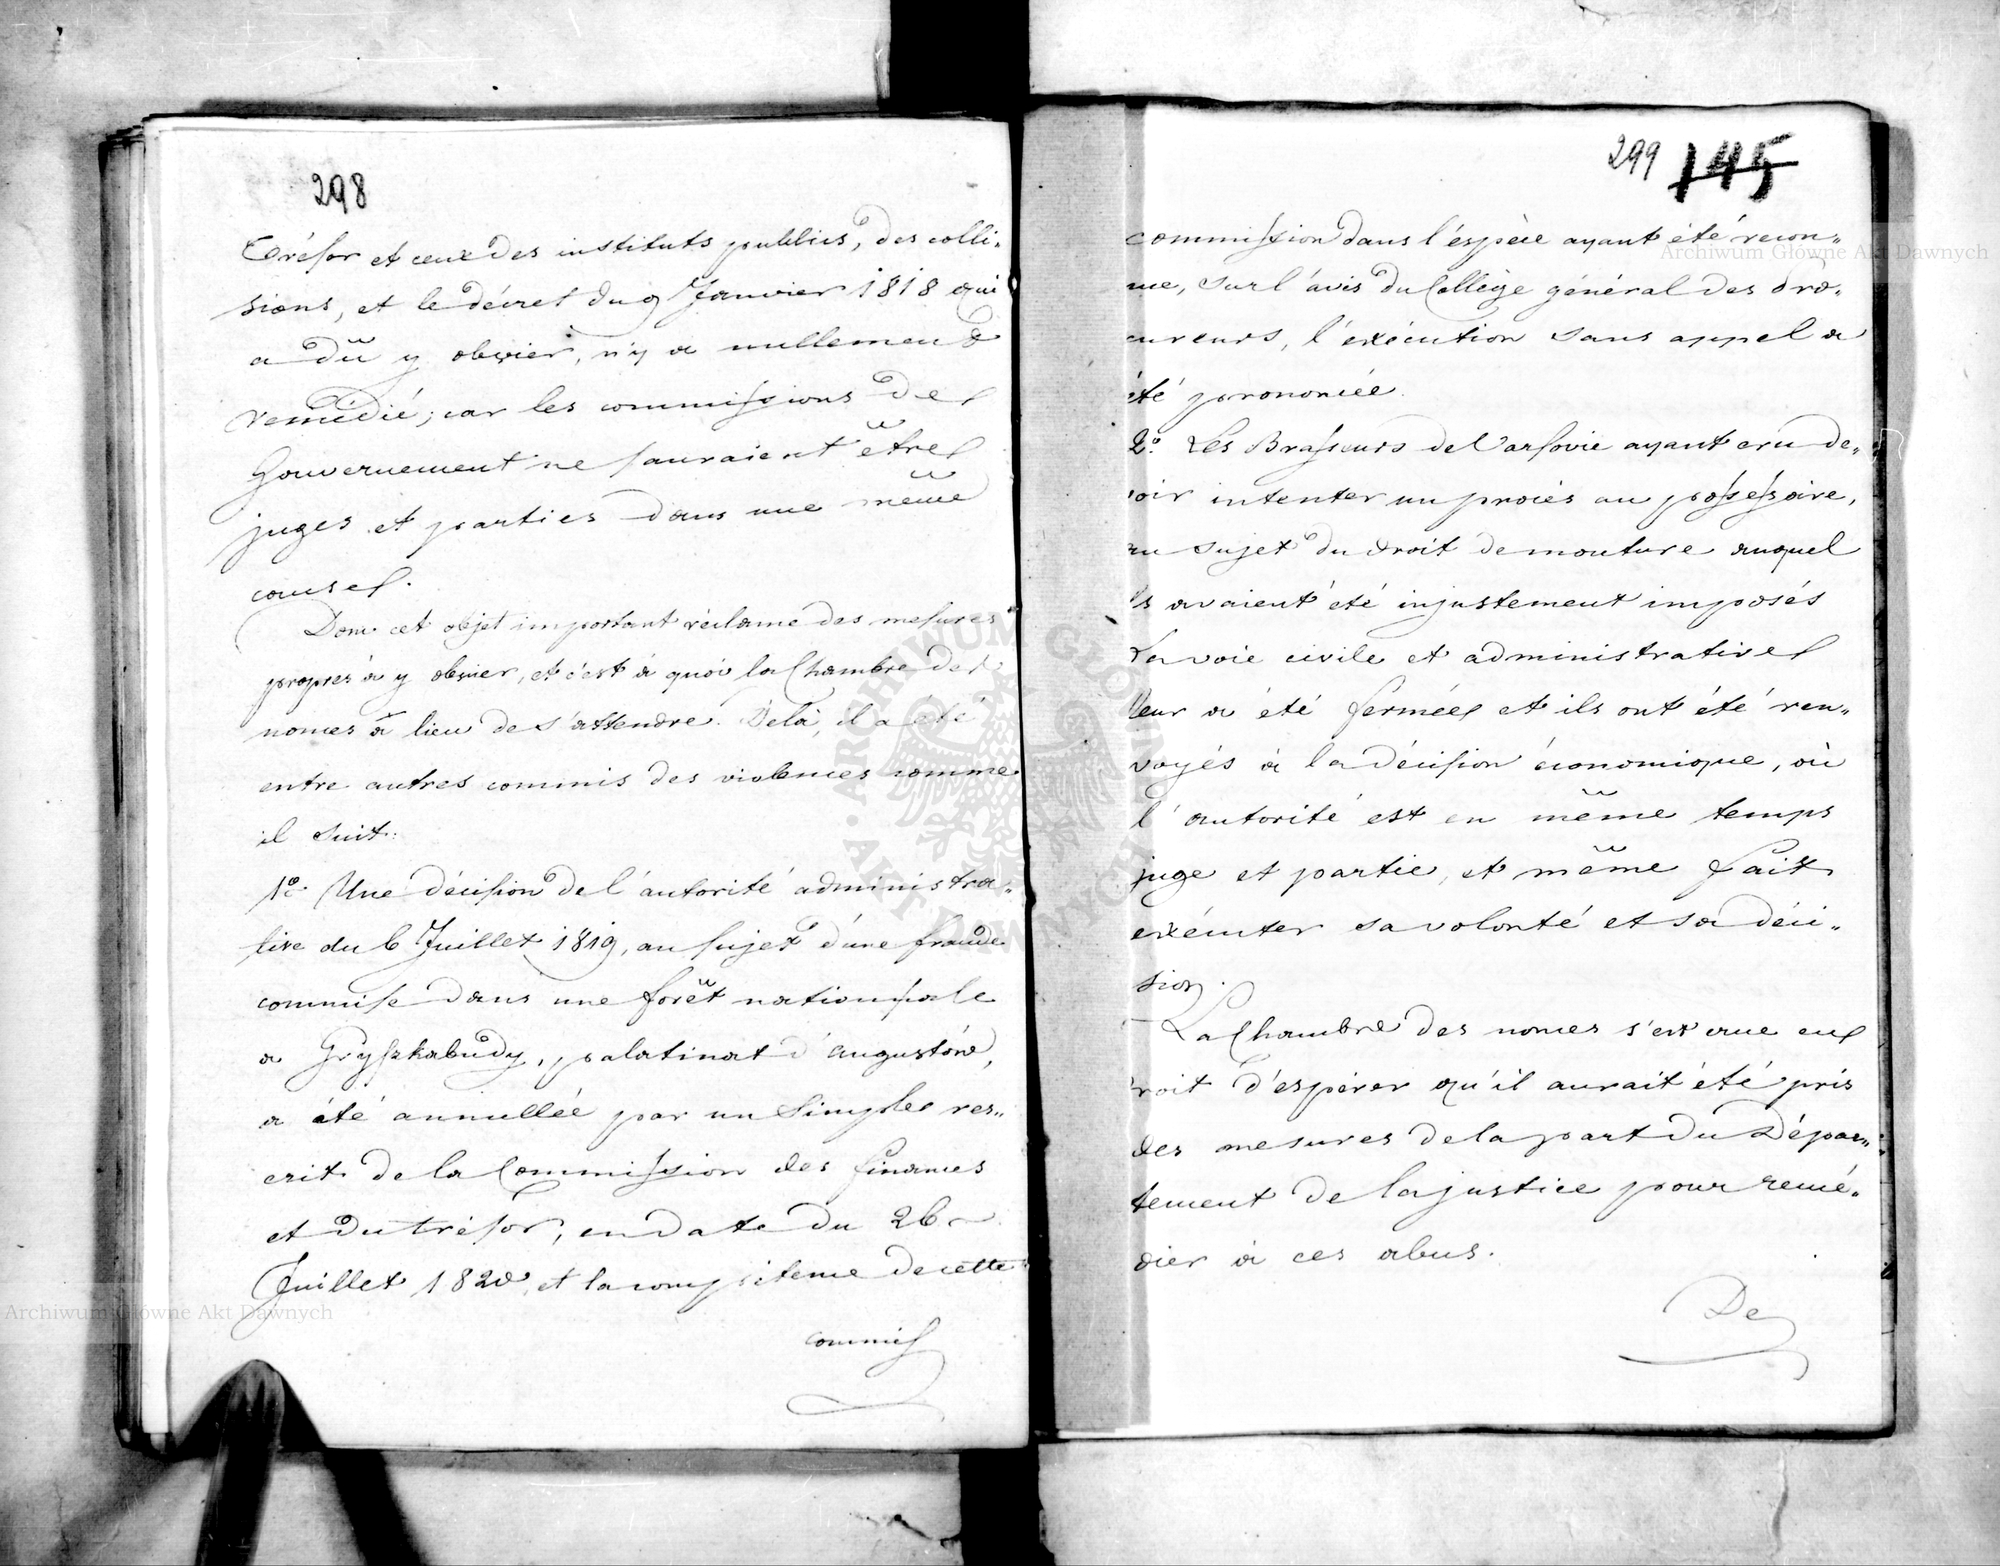 298
Trésor et ceux des instituts publics, des colli-
sions, et le décret du 9 Janvier 1818 qui
a dû y obvier, n'y a nullement
remédié; car les commissions de
Gouvernement ne sauraient être
juges et parties dans une même
cause.
Donc cet objet important réclame des mesures
propres à y obvier, et c'est à quoi la Chambre des
nonces a lieu de s'attendre. Delà, il a été
entre autres commis des violences comme
il suit:
1º Une décision de l'autorité administra-
tive du 6 Juillet 1819, au sujet d'une fraude
commise dans une forêt nationale
a Gryszkabudy, palatinat d'Augustów,
a été annullée par un simple res-
crit de la Commission des finances
et du trésor, en date du 26
Juillet 1820, et la compétence de cette
commis
299 145
commission dans l'espèce ayant été recon-
nue, sur l'avis du Collège général des Pro-
cureurs, l'exécution sans appel a
été prononcée.
2º Les Brasseurs de Varsovie ayant cru de-
voir intenter un procès au possessoire,
au sujet du droit de mouture auquel
ils avaient été injustement imposés
la voie civile et administrative
leur a été fermée et ils ont été ren-
voyés à la décision économique, où
l'autorité est en même temps
juge et partie, et même fait
exécuter sa volonté et sa déci-
sion.
La Chambre des nonces s'est crue en
droit d'espérer qu'il aurait été pris
des mesures de la part du Dépar-
tement de la justice pour remé-
dier à ces abus.
De
Archiwum Główne Akt Dawnych
Archiwum Główne Akt Dawnych
ARCHIWUM GŁÓWNE AKT DAWNYCH